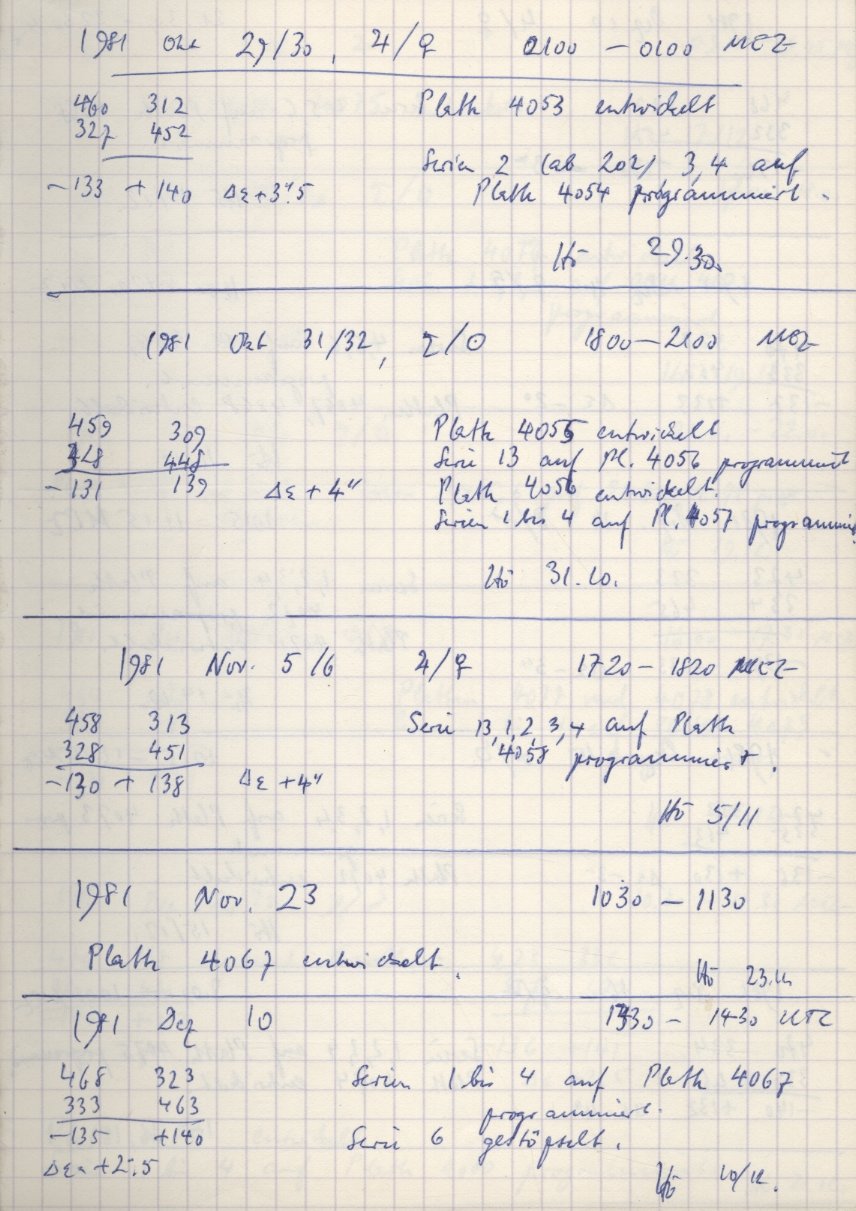 1981 Okt 29/30, 4/♀ 2100 – 0100 MEZ
460 312 Platte 4053 entwickelt
327 452
Serien 2 (ab 202), 3, 4 auf
-133 +140 Δε+3".5 Platte 4054 programmiert.
Hö 29.30.
1981 Okt 31/32, ♄/☉ 1800–2100 MEZ
459 309 Platte 4055 entwickelt
328 448 Serie 13 auf Pl. 4056 programmiert
-131 139 Δε + 4" Platte 4056 entwickelt.
Serien 1 bis 4 auf Pl. 4057 programmiert
Hö 31.10.
1981 Nov. 5/6 4/♀ 1720 – 1820 MEZ
458 313 Serie 13, 1, 2, 3, 4 auf Platte
328 451 4058 programmiert.
-130 + 138 Δε +4"
Hö 5/11
1981 Nov. 23 1030 – 1130
Platte 4067 entwickelt.
Hö 23.11
1981 Dez 10 1330 – 1430 UTC
468 323 Serien 1 bis 4 auf Platte 4067
333 463 programmiert.
-135 +140 Serie 6 gestöpselt.
Δε = +2".5
Hö 10/12.